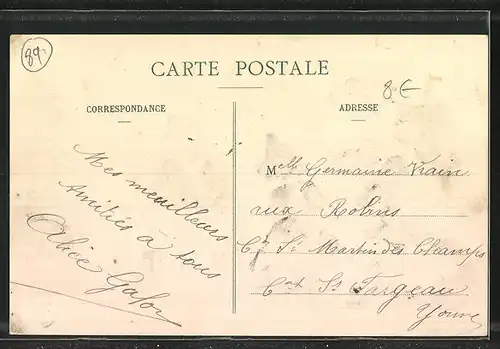 89
CARTE POSTALE
8 €
CORRESPONDANCE
ADRESSE
Mes meuilleurs
Amitiés à tous
Alice
Melle Germaine
aux Robins
Cne St Martin des Champs
Cant St Fargeau
Yonne